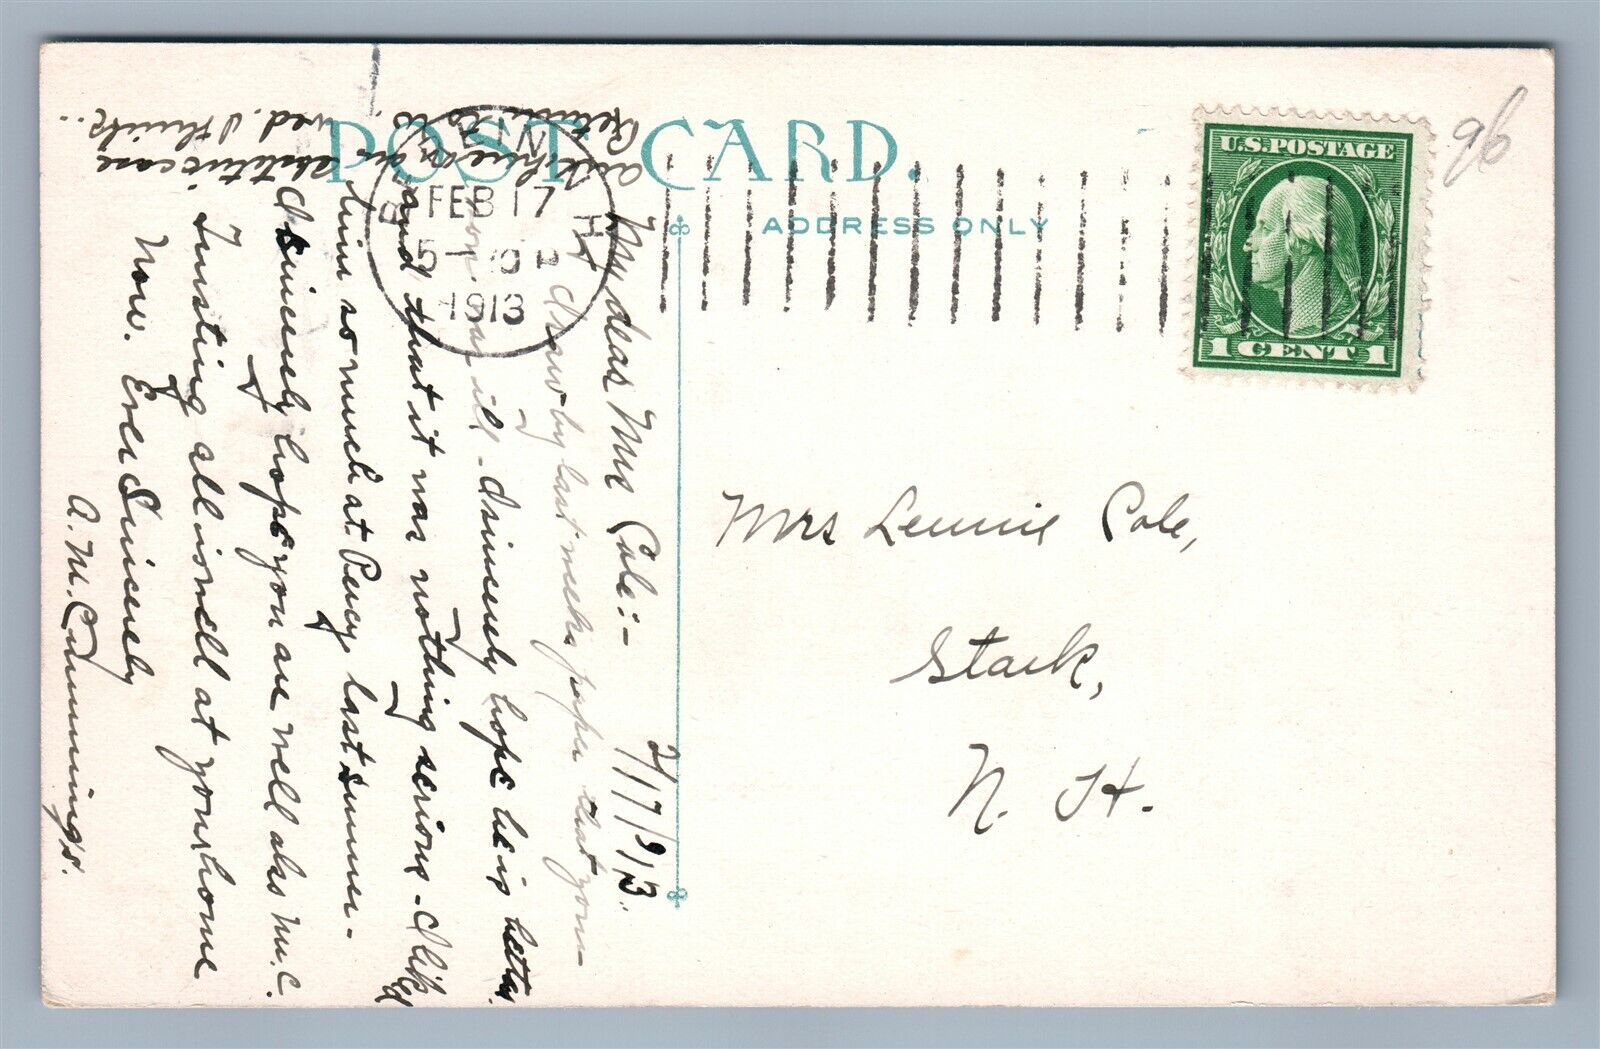 POST CARD.
ADDRESS ONLY
U.S. POSTAGE
1 CENT 1
BERLIN N.H.
FEB 17
5 - P
1913
96
Mrs Lennie Cole,
Stark,
N. H.
2/17/1913.
My dear Mrs Cole:-
I saw by last weeks paper that your
son was ill - Sincerely hope he is better
and that it was nothing serious - I lik'd
him so much at Percy last summer -
Sincerely hope you are well also Mr. C.
Trusting all is well at your home
now. Ever Sincerely
A. M. Cummings.
am here on an obstetric case
Return to
wed. I think..